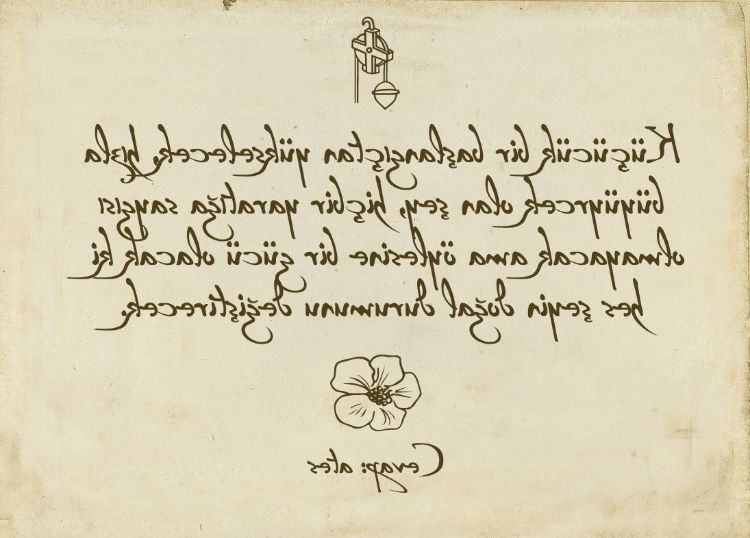 Küçücük bir başlangıçtan yükselecek, hızla
büyüyrcek olan şey, hiçbir yaratığa saygısı
olmayacak ama öylesine bir gücü olacak ki
hes şeyin doğal durumunu değiştirecek.
Cevap: ates